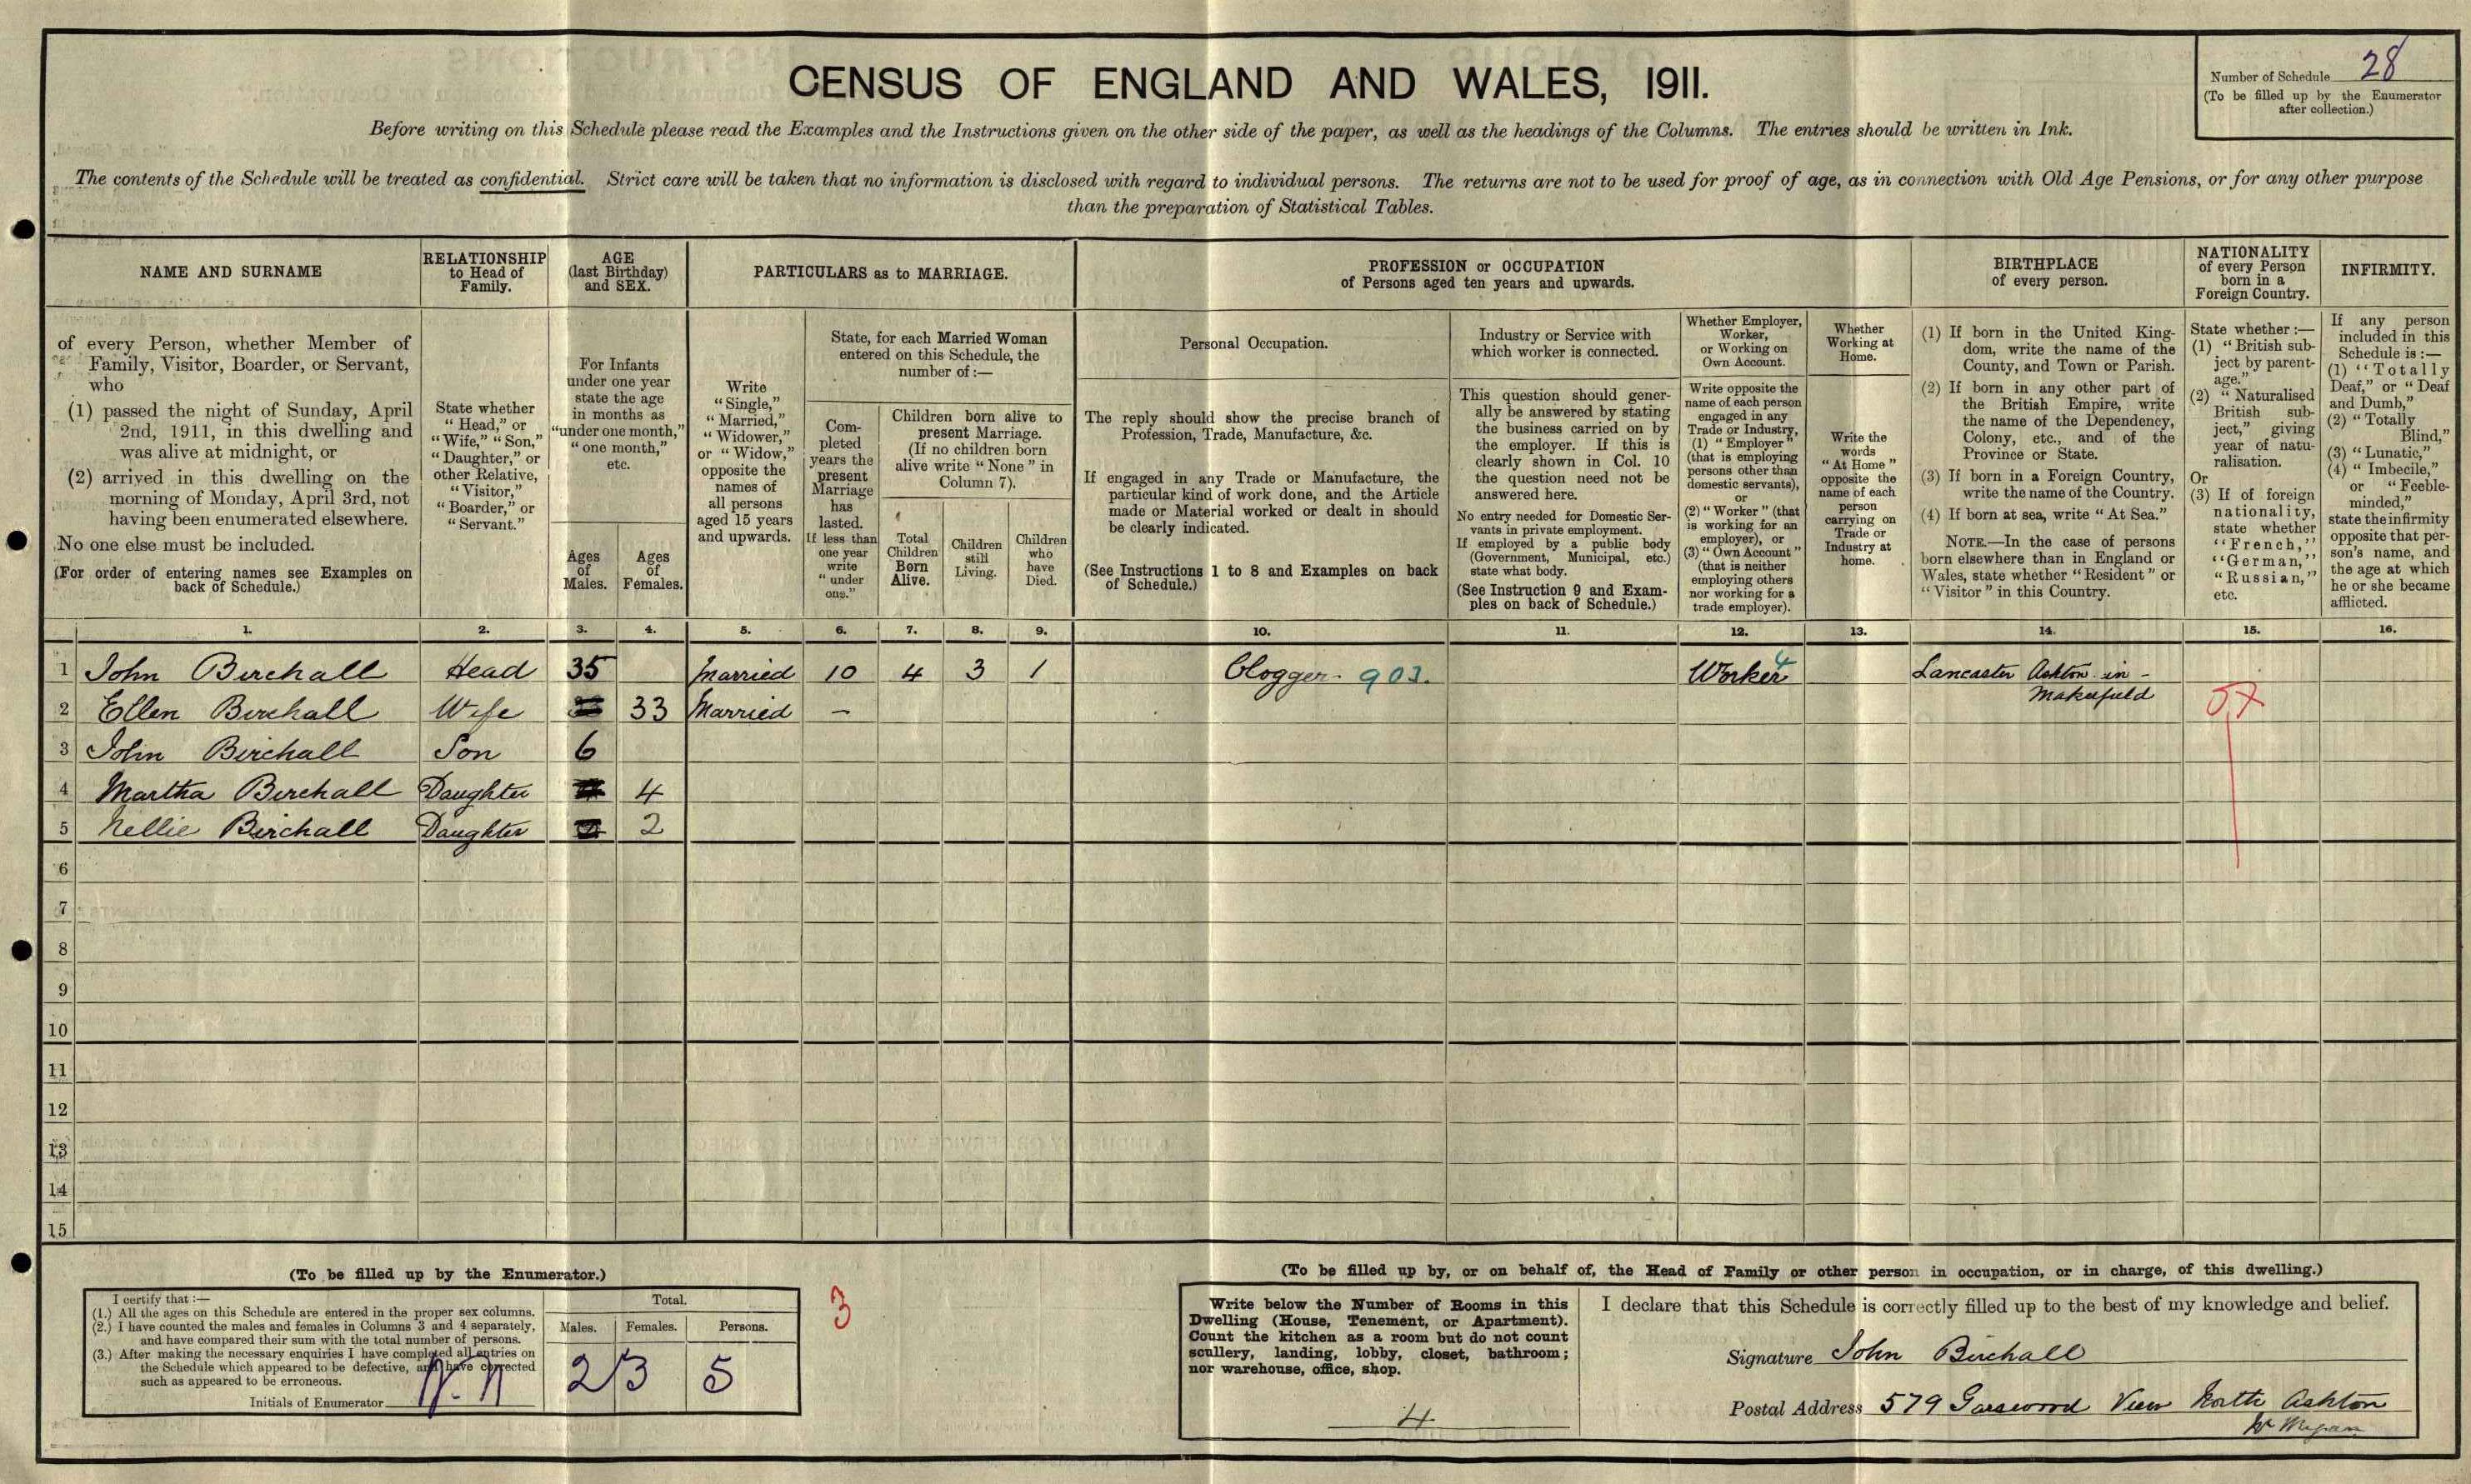 CENSUS OF ENGLAND AND WALES, 1911.
Number of Schedule 28
(To be filled up by the Enumerator
after collection.)
Before writing on this Schedule please read the Examples and the Instructions given on the other side of the paper, as well as the headings of the Columns. The entries should be written in Ink.
The contents of the Schedule will be treated as confidential. Strict care will be taken that no information is disclosed with regard to individual persons. The returns are not to be used for proof of age, as in connection with Old Age Pensions, or for any other purpose
than the preparation of Statistical Tables.
NAME AND SURNAME
RELATIONSHIP
to Head of
Family.
AGE
(last Birthday)
and SEX.
PARTICULARS as to MARRIAGE.
PROFESSION or OCCUPATION
of Persons aged ten years and upwards.
BIRTHPLACE
of every person.
NATIONALITY
of every Person
born in a
Foreign Country.
INFIRMITY.
of every Person, whether Member of
Family, Visitor, Boarder, or Servant,
who
(1) passed the night of Sunday, April
2nd, 1911, in this dwelling and
was alive at midnight, or
(2) arrived in this dwelling on the
morning of Monday, April 3rd, not
having been enumerated elsewhere.
No one else must be included.
(For order of entering names see Examples on
back of Schedule.)
State whether
"Head," or
"Wife," "Son,"
"Daughter," or
other Relative,
"Visitor,"
"Boarder," or
"Servant."
For Infants
under one year
state the age
in months as
"under one month,"
"one month,"
etc.
Ages
of
Males.
Ages
of
Females.
Write
"Single,"
"Married,"
"Widower,"
or "Widow,"
opposite the
names of
all persons
aged 15 years
and upwards.
State, for each Married Woman
entered on this Schedule, the
number of:—
Com-
pleted
years the
present
Marriage
has
lasted.
If less than
one year
write
"under
one."
Children born alive to
present Marriage.
(If no children born
alive write "None" in
Column 7).
Total
Children
Born
Alive.
Children
still
Living.
Children
who
have
Died.
Personal Occupation.
The reply should show the precise branch of
Profession, Trade, Manufacture, &c.
If engaged in any Trade or Manufacture, the
particular kind of work done, and the Article
made or Material worked or dealt in should
be clearly indicated.
(See Instructions 1 to 8 and Examples on back
of Schedule.)
Industry or Service with
which worker is connected.
This question should gener-
ally be answered by stating
the business carried on by
the employer. If this is
clearly shown in Col. 10
the question need not be
answered here.
No entry needed for Domestic Ser-
vants in private employment.
If employed by a public body
(Government, Municipal, etc.)
state what body.
(See Instruction 9 and Exam-
ples on back of Schedule.)
Whether Employer,
Worker,
or Working on
Own Account.
Write opposite the
name of each person
engaged in any
Trade or Industry,
(1) "Employer"
(that is employing
persons other than
domestic servants),
or
(2) "Worker" (that
is working for an
employer), or
(3) "Own Account"
(that is neither
employing others
nor working for a
trade employer).
Whether
Working at
Home.
Write the
words
"At Home"
opposite the
name of each
person
carrying on
Trade or
Industry at
home.
(1) If born in the United King-
dom, write the name of the
County, and Town or Parish.
(2) If born in any other part of
the British Empire, write
the name of the Dependency,
Colony, etc., and of the
Province or State.
(3) If born in a Foreign Country,
write the name of the Country.
(4) If born at sea, write "At Sea."
NOTE.—In the case of persons
born elsewhere than in England or
Wales, state whether "Resident" or
"Visitor" in this Country.
State whether:—
(1) "British sub-
ject by parent-
age."
(2) "Naturalised
British sub-
ject," giving
year of natu-
ralisation.
Or
(3) If of foreign
nationality,
state whether
"French,"
"German,"
"Russian,"
etc.
If any person
included in this
Schedule is:—
(1) "Totally
Deaf," or "Deaf
and Dumb,"
(2) "Totally
Blind,"
(3) "Lunatic,"
(4) "Imbecile,"
or "Feeble-
minded,"
state the infirmity
opposite that per-
son's name, and
the age at which
he or she became
afflicted.
1. 2. 3. 4. 5. 6. 7. 8. 9. 10. 11. 12. 13. 14. 15. 16.
1 John Birchall Head 35 Married 10 4 3 1 Clogger 903. Worker 4 Lancaster Ashton-in-
Makerfield
2 Ellen Birchall Wife 33 Married –
3 John Birchall Son 6
4 Martha Birchall Daughter 4
5 Nellie Birchall Daughter 2
6
7
8
9
10
11
12
13
14
15
(To be filled up by the Enumerator.)
I certify that:—
(1.) All the ages on this Schedule are entered in the proper sex columns.
(2.) I have counted the males and females in Columns 3 and 4 separately,
and have compared their sum with the total number of persons.
(3.) After making the necessary enquiries I have completed all entries on
the Schedule which appeared to be defective, and have corrected
such as appeared to be erroneous.
Initials of Enumerator
Total.
Males. Females. Persons.
2 3 5
3
(To be filled up by, or on behalf of, the Head of Family or other person in occupation, or in charge, of this dwelling.)
Write below the Number of Rooms in this
Dwelling (House, Tenement, or Apartment).
Count the kitchen as a room but do not count
scullery, landing, lobby, closet, bathroom;
nor warehouse, office, shop.
4
I declare that this Schedule is correctly filled up to the best of my knowledge and belief.
Signature John Birchall
Postal Address 579 Garswood View North Ashton
Nr Wigan